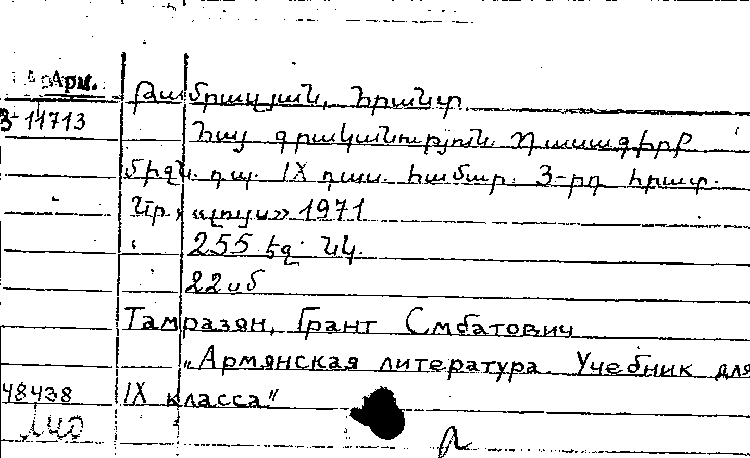 Арм.
Թամրազյան, Հրանտ
3-14713
Հայ գրականություն. Դասագիրք
միջն. դպ. IX դաս. համար. 3-րդ հրատ.
Եր., «Լույս» 1971
255 էջ. նկ.
22սմ
Тамразян, Грант Смбатович
„Армянская литература. Учебник для
48438 IX класса"